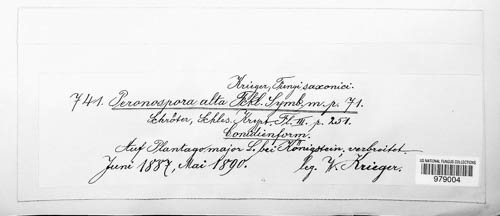 Krieger, Fungi saxonici.
741. Peronospora alta Fckl. Symb. m. p. 71.
Schröter, Schles. Krypt. Fl. III. p. 251.
Conidienform.
Auf Plantago major L. bei Königstein, verbreitet
Juni 1887, Mai 1890. leg. W. Krieger.
US NATIONAL FUNGUS COLLECTIONS
979004